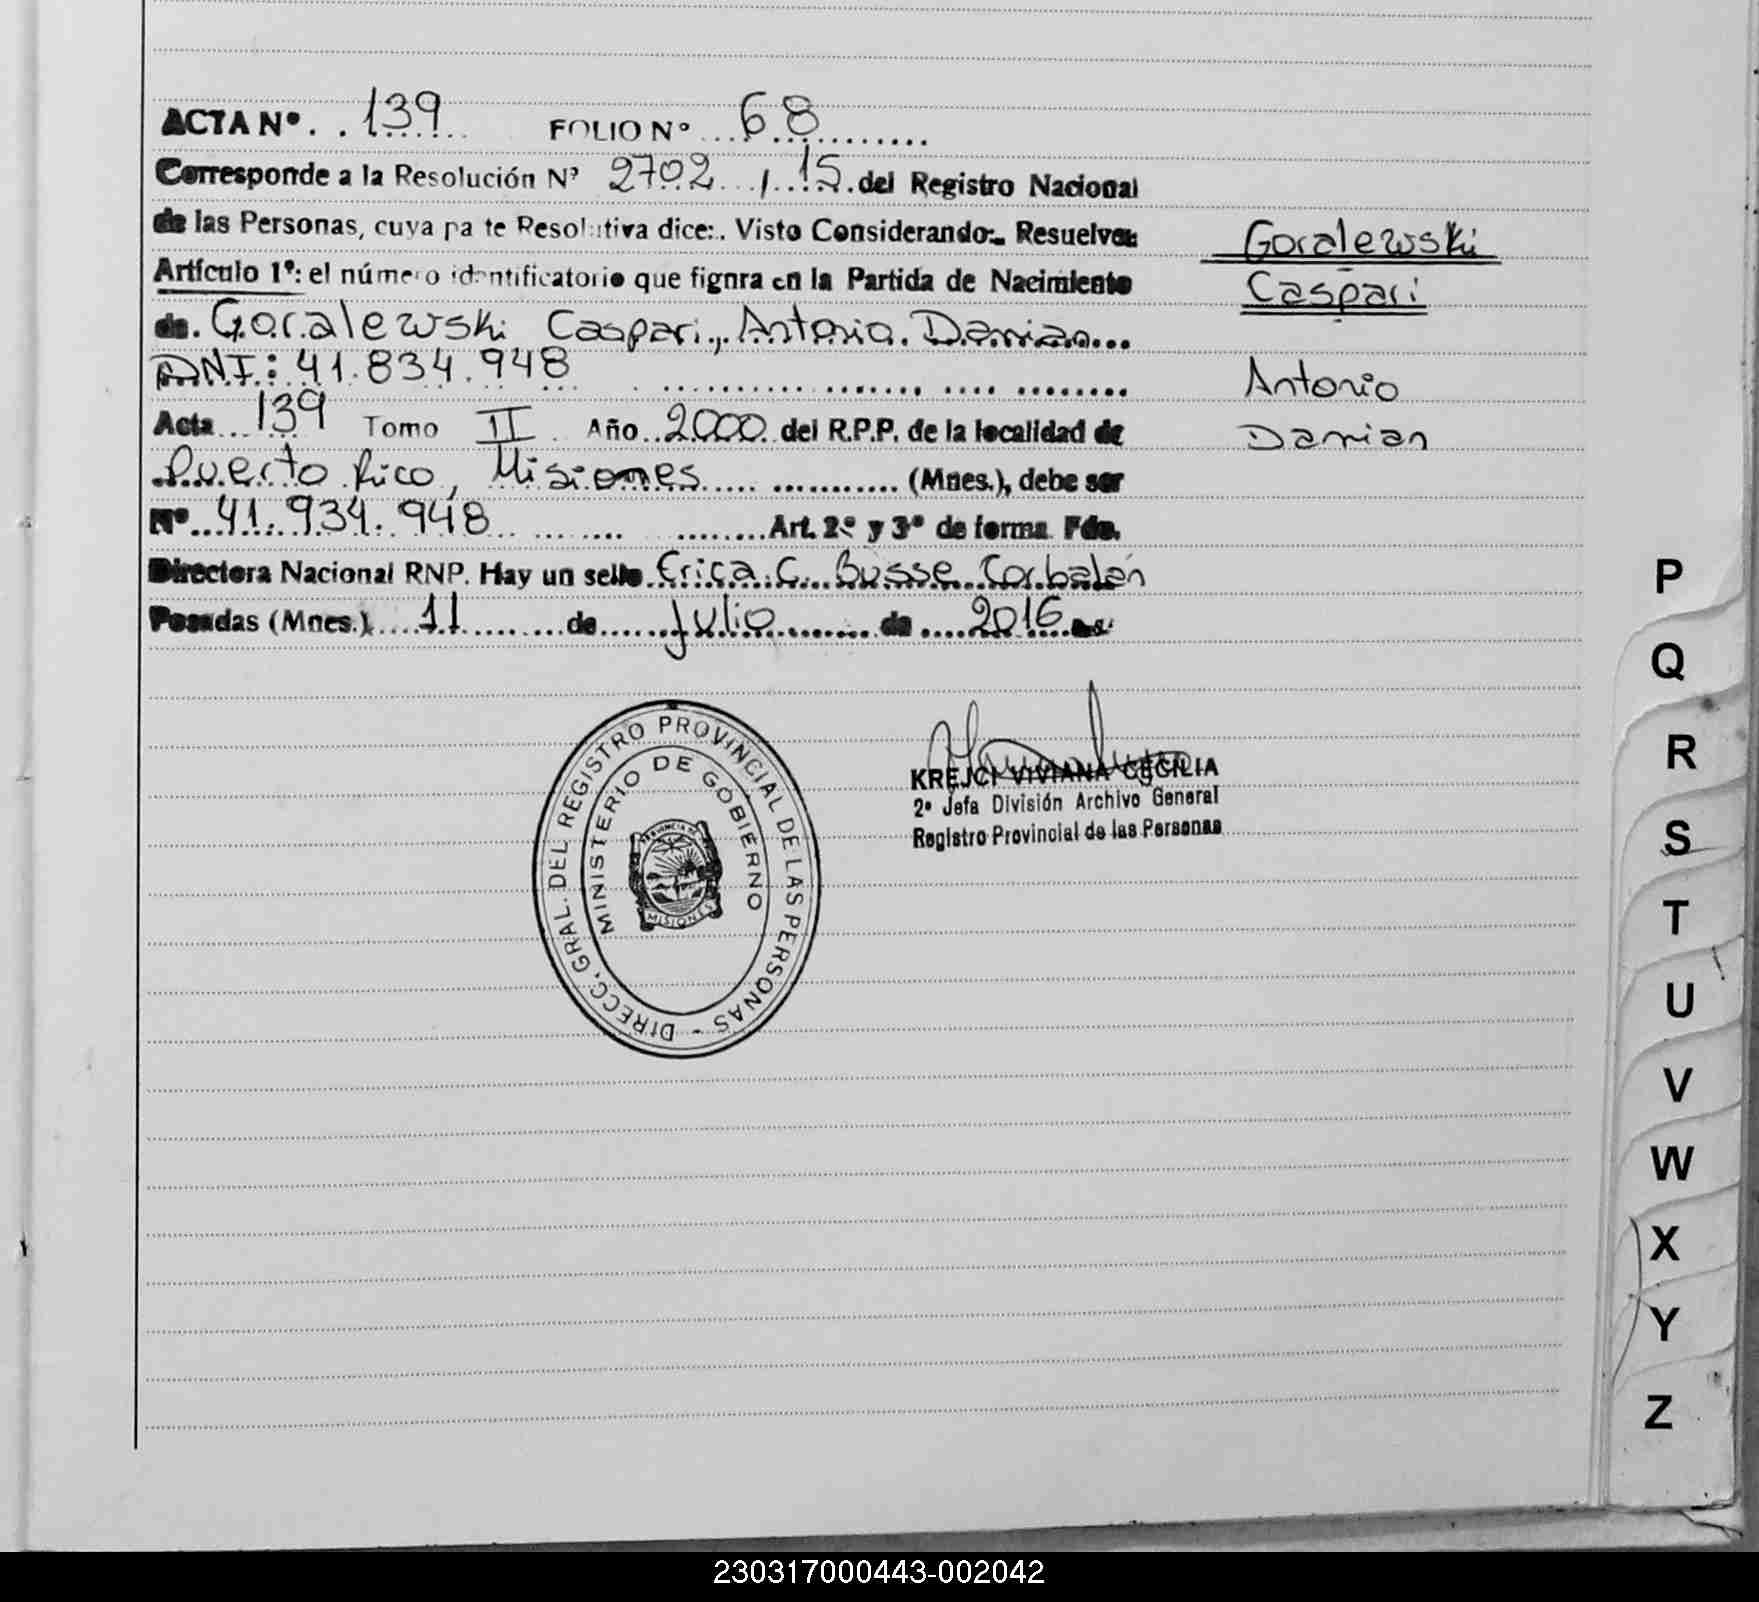 ACTA Nº. . 139 FOLIO Nº ... 68 ..........
Corresponde a la Resolución Nº 2702 ... / .. 15 . del Registro Nacional
de las Personas, cuya pa te Resolutiva dice:. Visto Considerando:- Resuelve:
Artículo 1º: el número identificatorio que fignra en la Partida de Nacimiento
de. Goralewski Caspari, Antonio. Damian...
DNI: 41.834.948 ....................
Acta... 139 Tomo II Año.. 2000 .. del R.P.P. de la localidad de
Puerto Rico, Misiones ..... ............ (Mnes.), debe ser
Nº.. 41.934.948 ... ........ ........ Art. 2º y 3º de forma. Fdo.
Directora Nacional RNP. Hay un sello. Erica. C. Busse. Corbalán
Posadas (Mnes.).... 11 ......... de...... Julio ......... de .... 2016
Goralewski
Caspari
Antonio
Damian
DIRECC. GRAL. DEL REGISTRO PROVINCIAL DE LAS PERSONAS -
MINISTERIO DE GOBIERNO
PROVINCIA DE
MISIONES
KREJCI VIVIANA CECILIA
2º Jefa División Archivo General
Registro Provincial de las Personas
P
Q
R
S
T
U
V
W
X
Y
Z
230317000443-002042